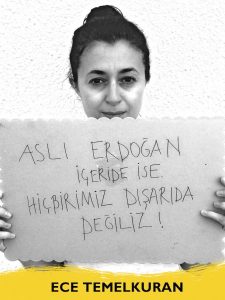 ASLI ERDOĞAN
İÇERİDE İSE
HİÇBİRİMİZ DIŞARIDA
DEĞİLİZ!
ECE TEMELKURAN